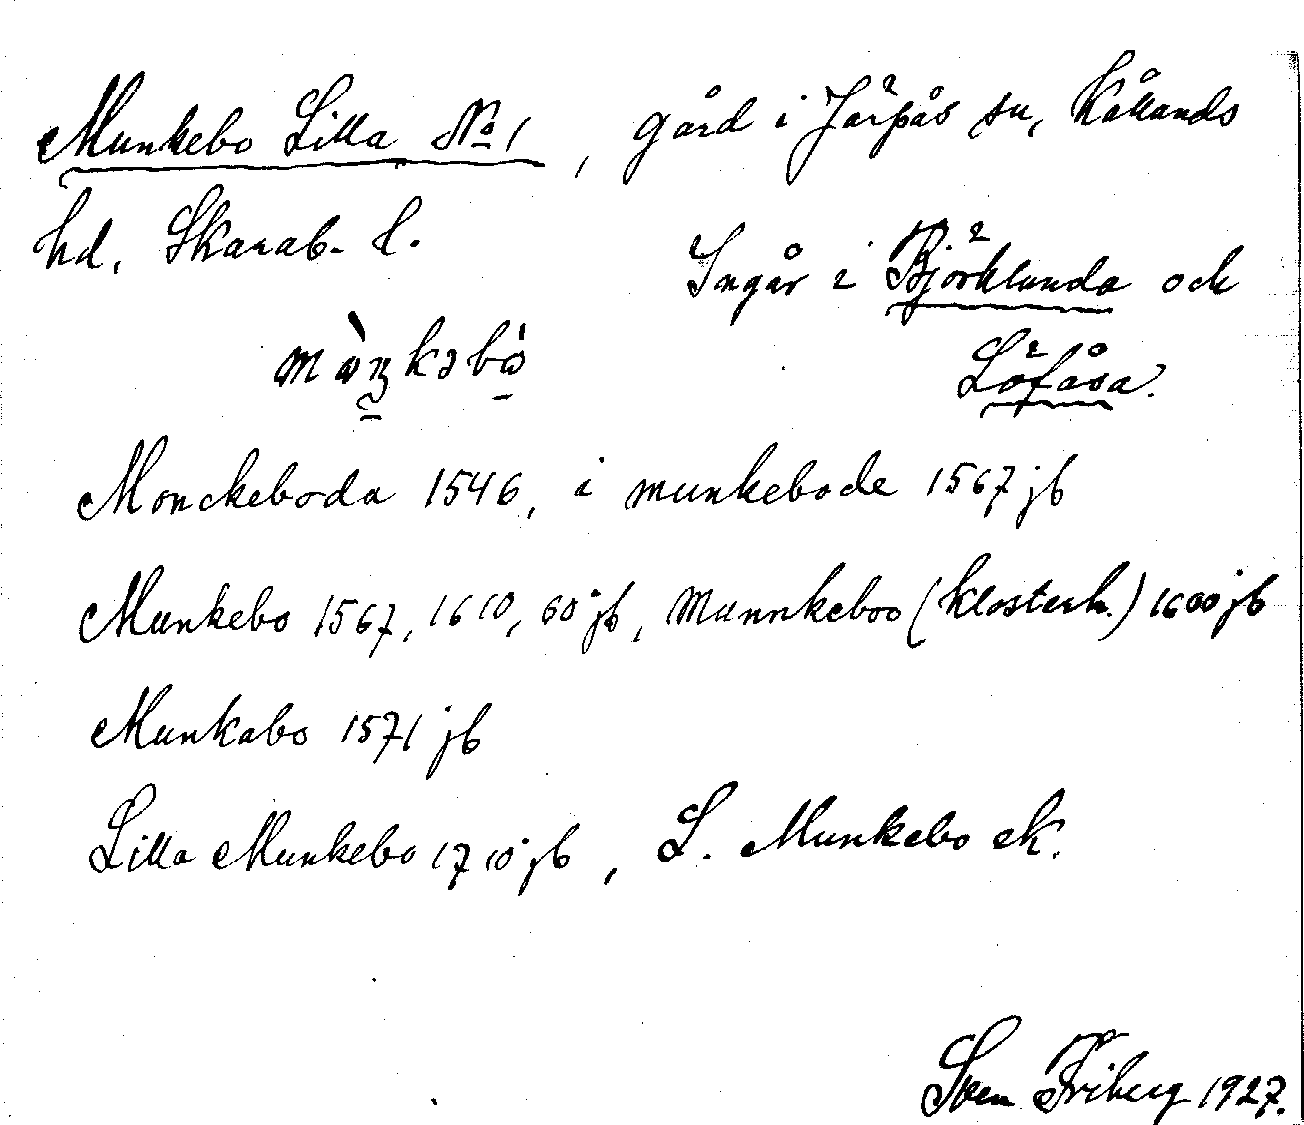 Munkebo Lilla No 1, gård i Järpås sn, Kållands
hd, Skarab. l.
Ingår i Björklunda och
Löfåsa.
Monckeboda 1546, i munkebode 1567 jb
Munkebo 1567, 1610, 60 jb, Munnkeboo (klosterh.) 1600 jb
Munkabo 1571 jb
Lilla Munkebo 1710 jb, L. Munkebo ek.
Sven Friberg 1927.